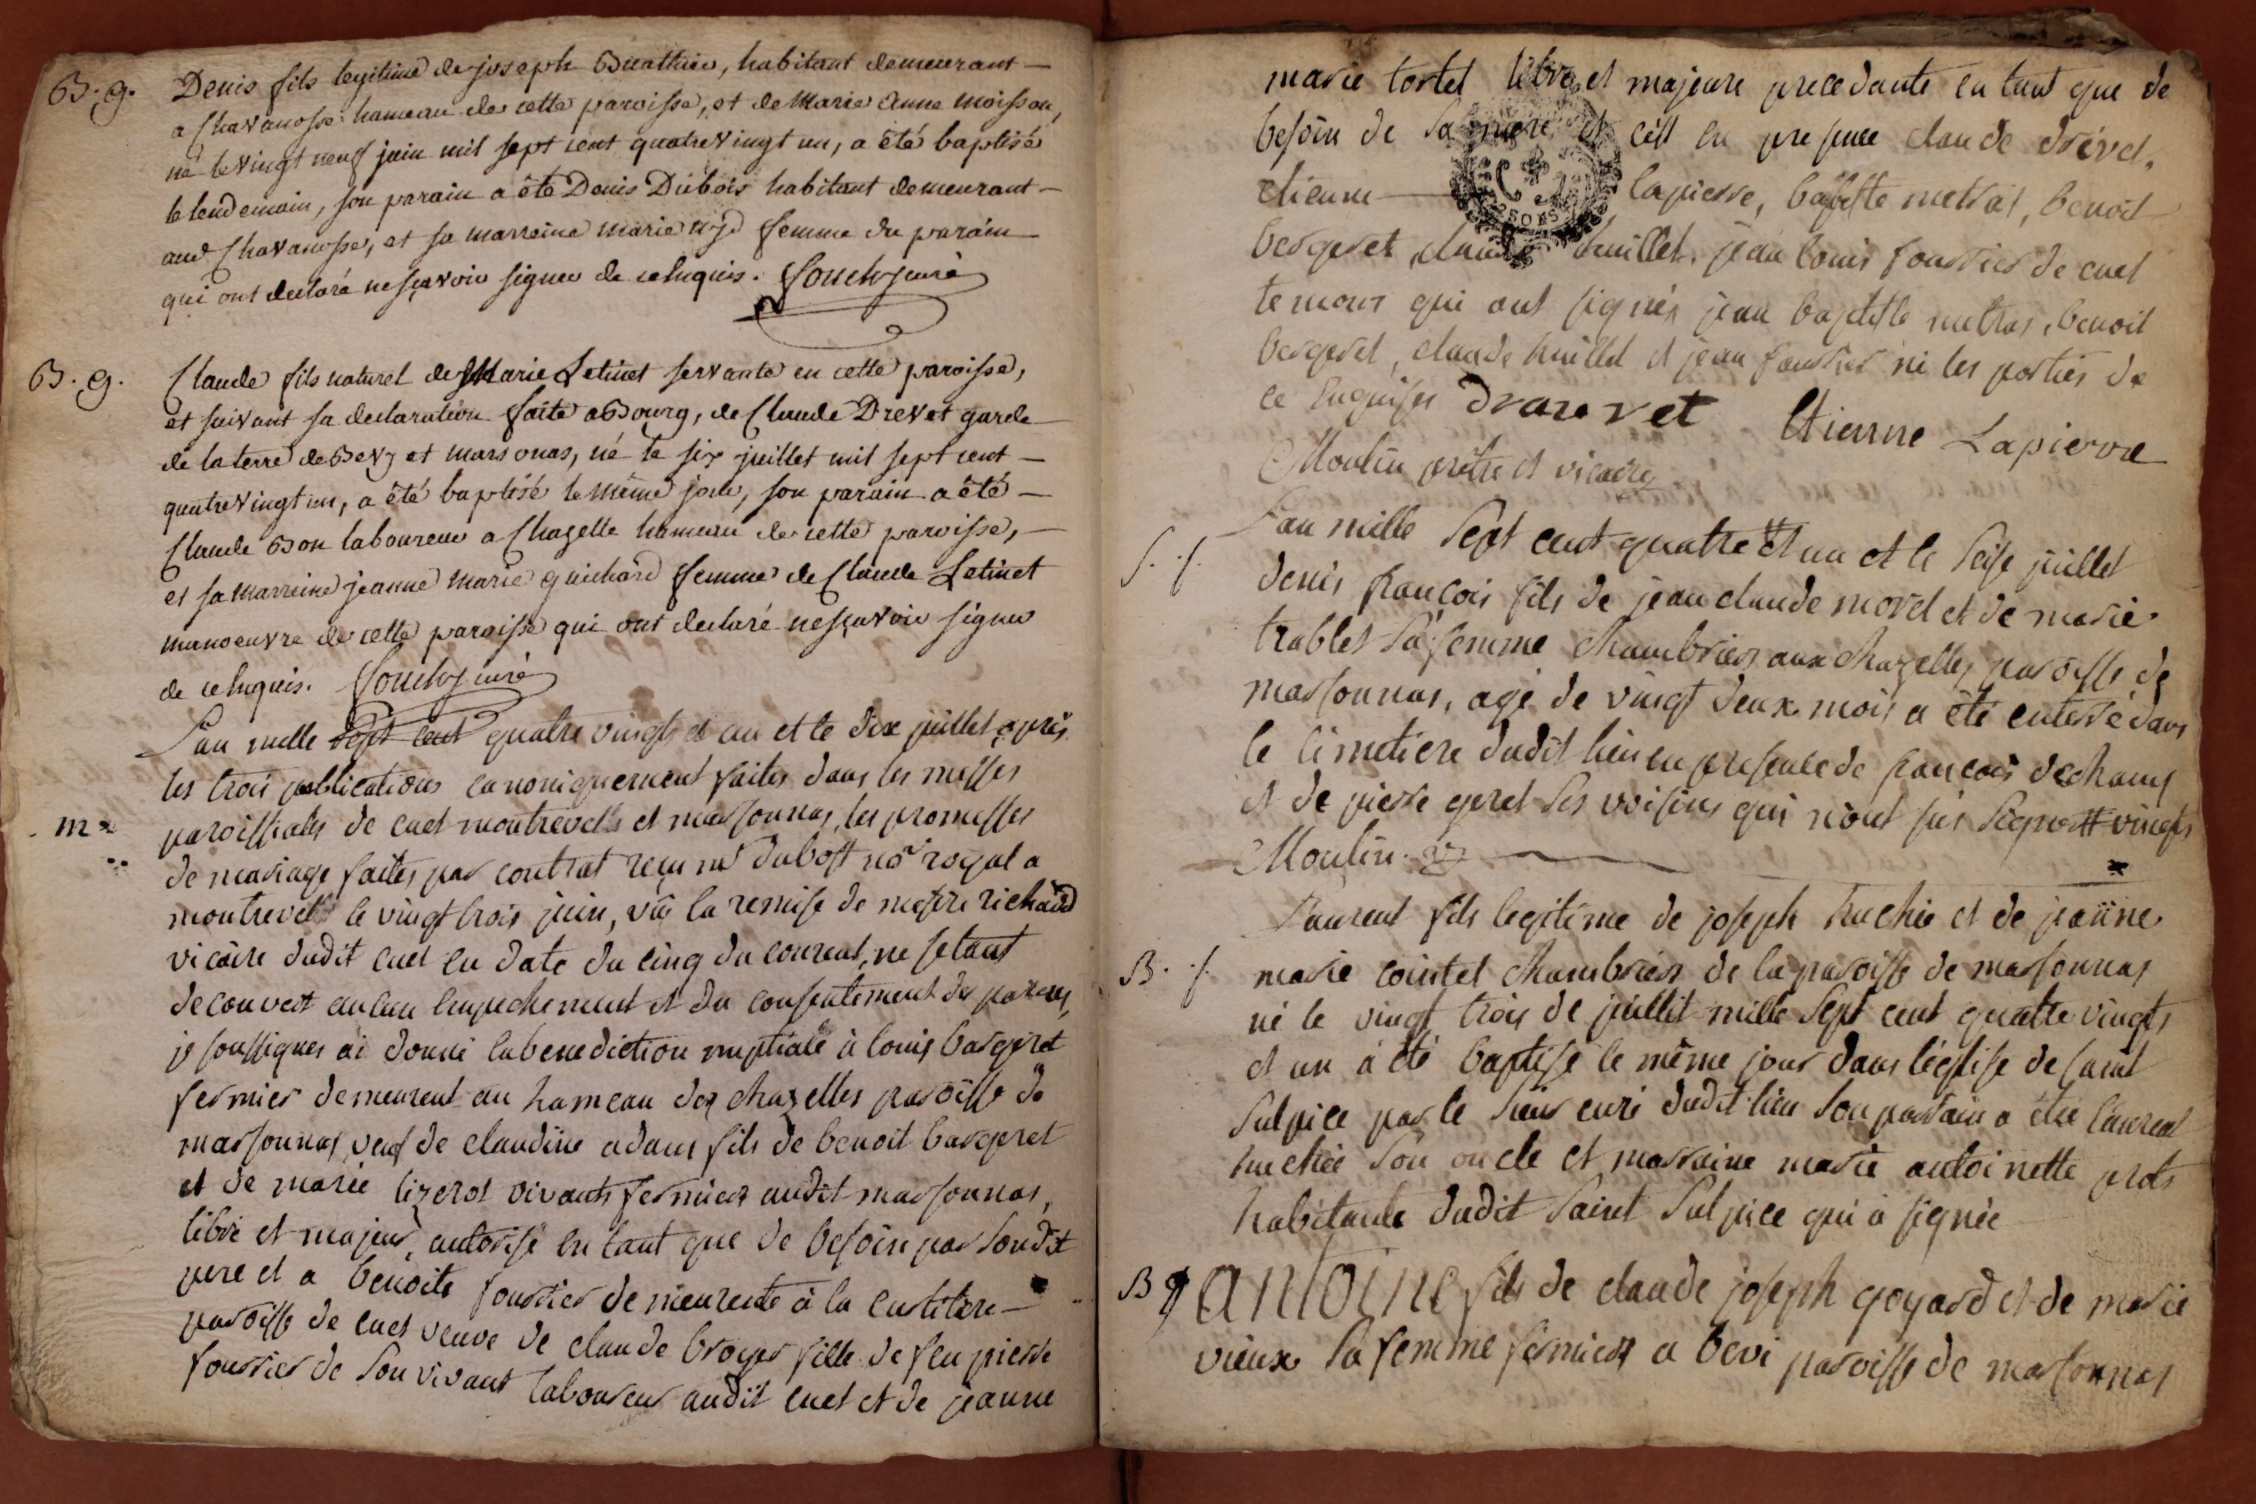 B. g. Denis fils legitime de joseph Buathier, habitant demeurant
a Chavanosse hameau de cette paroisse, et de Marie Anne moisson,
né le vingt neuf juin mil sept cent quatrevingt un, a été baptisé
le lendemain, son parain a été Denis Dubois habitant demeurant
aud Chavanosse, et sa marreine marie femme du parain
qui ont declaré nesçavoir signer de ce Inquis. curé
B. g. Claude fils naturel de Marie Letinet servante en cette paroisse,
et suivant sa declaration faite a Bourg, de Claude Drevet garde
de la terre de Bevy et marsonas, né le six juillet mil sept cent
quatrevingt un, a été baptisé le même jour, son parain a été
Claude Bon laboureur a Chazelle hameau de cette paroisse,
et sa marreine jeanne marie guichard femme de Claude Letinet
manoeuvre de cette paroisse qui ont declaré nesçavoir signer
de ce Inquis. curé
L'an mille sept cent quatre vingt et un et le dix juillet après
les trois publications canoniquement faites dans les messes
m paroissiales de cuet montrevel et marsonnas, les promesses
de mariage faites par contrat reçu me dubost nre royal a
montrevel le vingt trois juin, vû la remise de messire richard
vicaire dudit cuet en date du cinq du courent, ne setant
decouvert aucun empechement et du consentement des parens,
je soussignes ai donné la benediction nuptiale à louis bergeret
fermier demeurent au hameau des chazelles paroisse de
marsonnas, veuf de claudine adam fils de benoit bergeret
et de marie lizerot vivants fermiers audit marsonnas,
libre et majeur, autorisé en tant que de besoin par soudit
pere et a benoite fourrier demeurente à la
paroisse de cuet veuve de claude broyer fille de feu pierre
fourrier de son vivant laboureur audit cuet et de jeanne
marie tortel libre et majeure precedante en tant que de
besoin de sa mere et c'est en presence claude drevet,
etienne lapierre, baptiste metrat, benoit
bergeret, claude huillet, jean louis fourrier de cuet
temoins qui ont signés jean baptiste metras, benoit
bergeret, claude huillet et jean fourrier ni les parties de
ce enquises Etienne Lapierre
Moulin prêtre et vicaire
S. f. L'an mille sept cent quatre et un et le seise juillet
denis françois fils de jean claude morel et de marie
trablet sa femme chambriers aux chazelles paroisse de
marsonnas, agé de vingt deux mois a été enterré dans
le cimetiere dudit lieu en presence de françois dechamp
et de pierre geret ses voisins qui n'ont sus signer # vingts
Moulin. v
Laurent fils legitime de joseph huchié et de jeanne
B. f. marie cointet chambriers de la paroisse de marsonnas
né le vingt trois de juillit mille sept cent quatre vingts
et un à été baptisé le même jour dans l'église de saint
sulpice par le sieur curé dudit lieu son parrain a été laurent
huchié son oncle et marraine marie antoinette
habitante dudit saint sulpice qui a signée
B g Antoine fils de claude joseph goyard et de marie
vieux sa femme fermiers a bevi paroisse de marsonnas